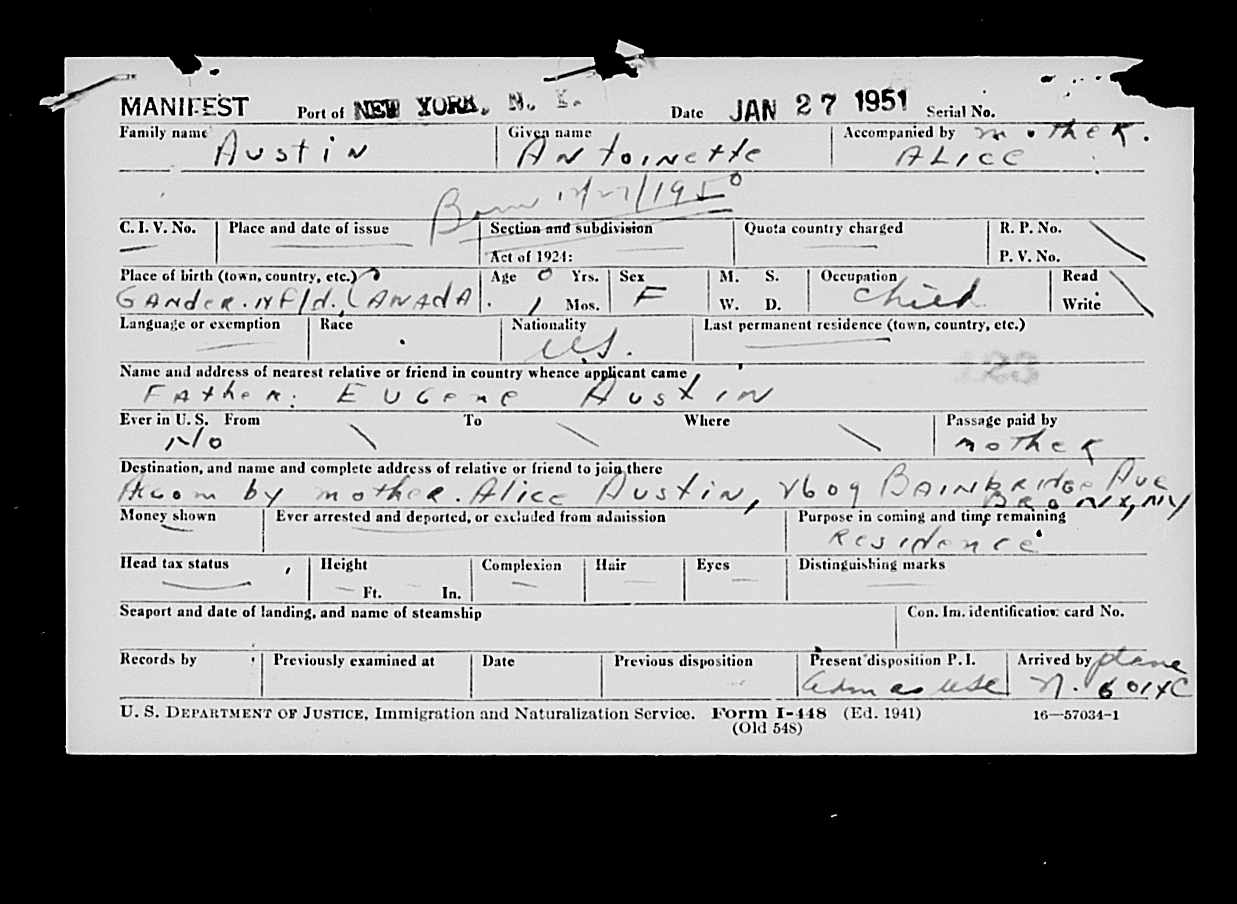 MANIFEST Port of NEW YORK, N. Y. Date JAN 27 1951 Serial No.
Family name Given name Accompanied by mother.
Austin Antoinette Alice
Born 12/27/1950
C. I. V. No. Place and date of issue Section and subdivision Quota country charged R. P. No.
Act of 1924: P. V. No.
Place of birth (town, country, etc.) Age 0 Yrs. Sex M. S. Occupation Read
Gander. Nfld. Canada 1 Mos. F W. D. Child Write
Language or exemption Race Nationality Last permanent residence (town, country, etc.)
U.S.
Name and address of nearest relative or friend in country whence applicant came
Father: Eugene Austin
Ever in U. S. From To Where Passage paid by
No mother
Destination, and name and complete address of relative or friend to join there
Accom by mother. Alice Austin, 2609 Bainbridge Ave
Bronx, NY
Money shown Ever arrested and deported, or excluded from admission Purpose in coming and time remaining
Residence
Head tax status Height Complexion Hair Eyes Distinguishing marks
Ft. In.
Seaport and date of landing, and name of steamship Con. Im. identification card No.
Records by Previously examined at Date Previous disposition Present disposition P. I. Arrived by plane
adm as USC N. 601
U. S. DEPARTMENT OF JUSTICE, Immigration and Naturalization Service. Form I-448 (Ed. 1941) 16—57034-1
(Old 548)